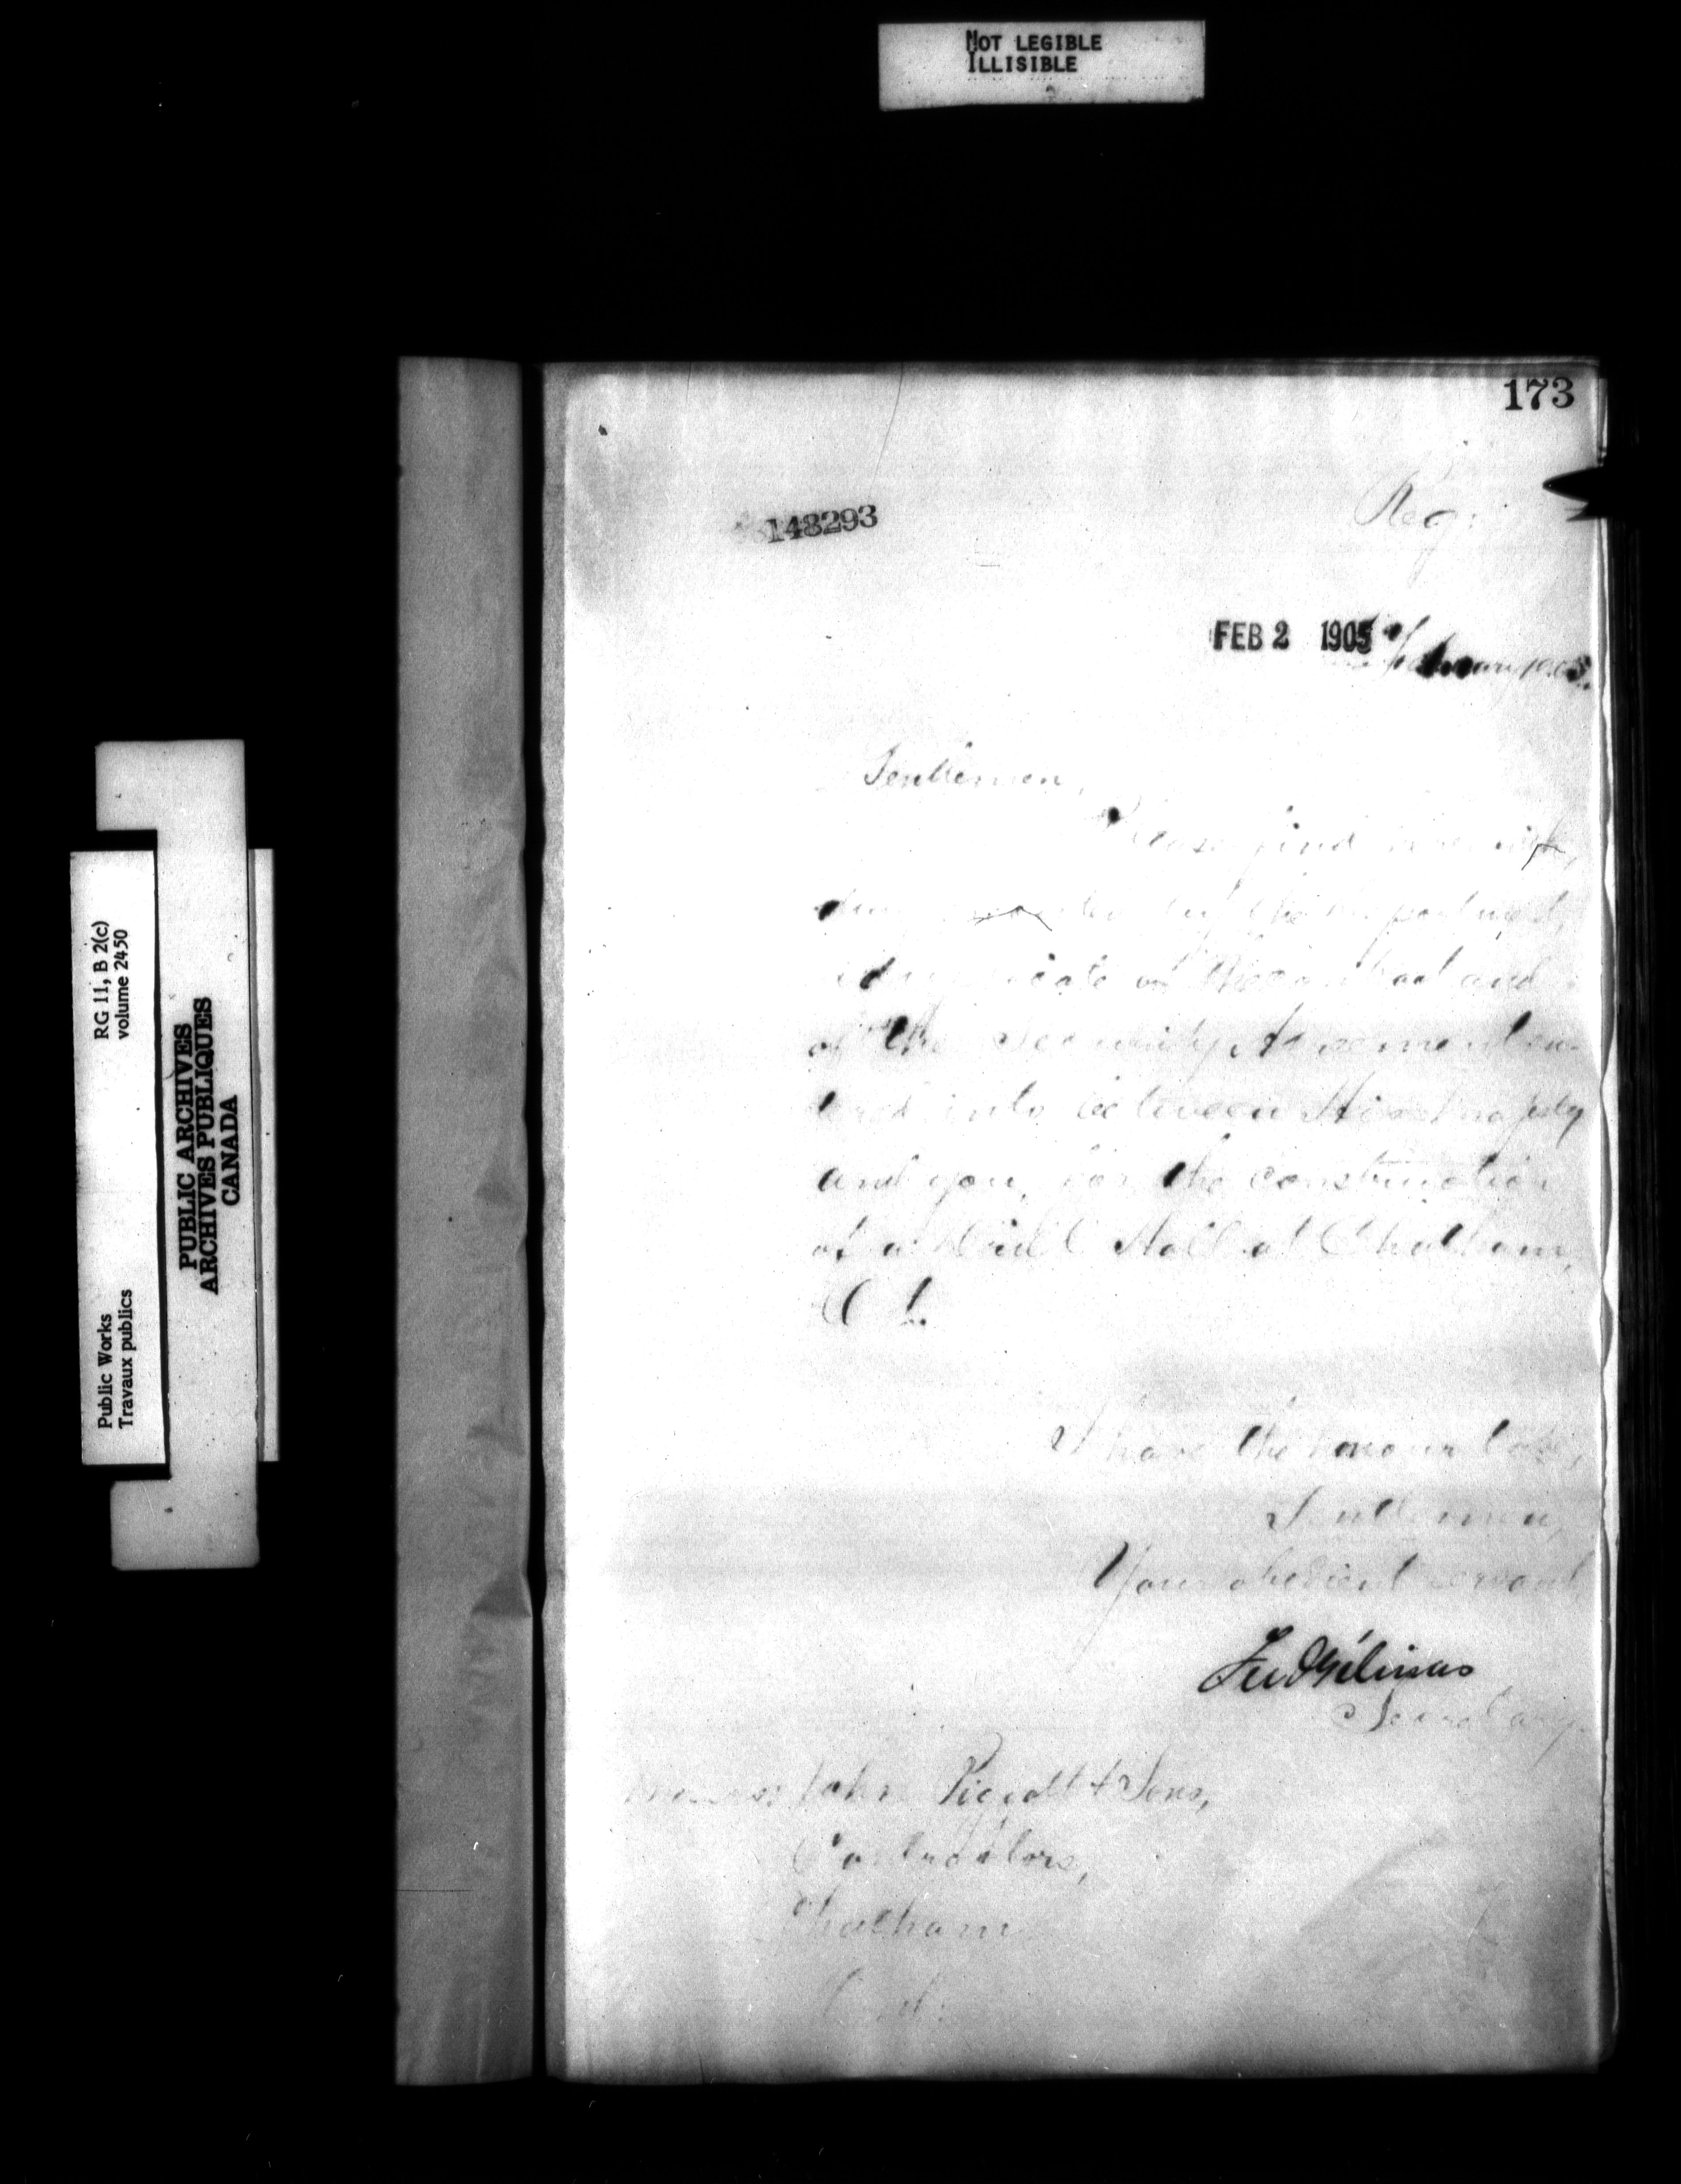 NOT LEGIBLE
ILLISIBLE
173
Reg.
148293
FEB 2 1905
February 1905.
Gentlemen,
Please find herewith,
by the Department,
duplicate of the contract and
of the Security Agreement en-
tered into between His Majesty
and you, for the construction
of a Drill Hall at Chatham,
Ont.
I have the honour to be,
Gentlemen,
Your obedient servant
Fred Gélinas
Secretary.
Messrs John Piggott & Sons,
Contractors,
Chatham
Ont.
RG 11, B 2(c)
volume 2450
Public Works
Travaux publics
PUBLIC ARCHIVES
ARCHIVES PUBLIQUES
CANADA